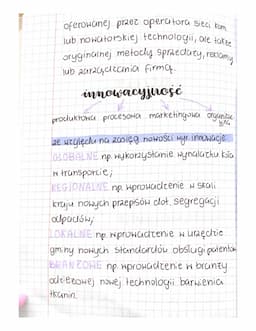 oferowanej przez operatora sieci kom.
lub nowatorskiej technologii, ale także
oryginalnej metody sprzedaży, reklamy
lub zarządzania firmą.
innowacyjność
produktowa procesowa marketingowa organizacyjna
ze względu na zasięg nowości wyr. innowacje:
GLOBALNE np. wykorzystanie wynalazku koła
w transporcie;
REGIONALNE np. wprowadzenie w skali
kraju nowych przepisów dot. segregacji
odpadów;
LOKALNE np. wprowadzenie w urzędzie
gminy nowych standardów obsługi petentów
BRANŻOWE np. wprowadzenie w branży
odzieżowej nowej technologii barwienia
tkanin.